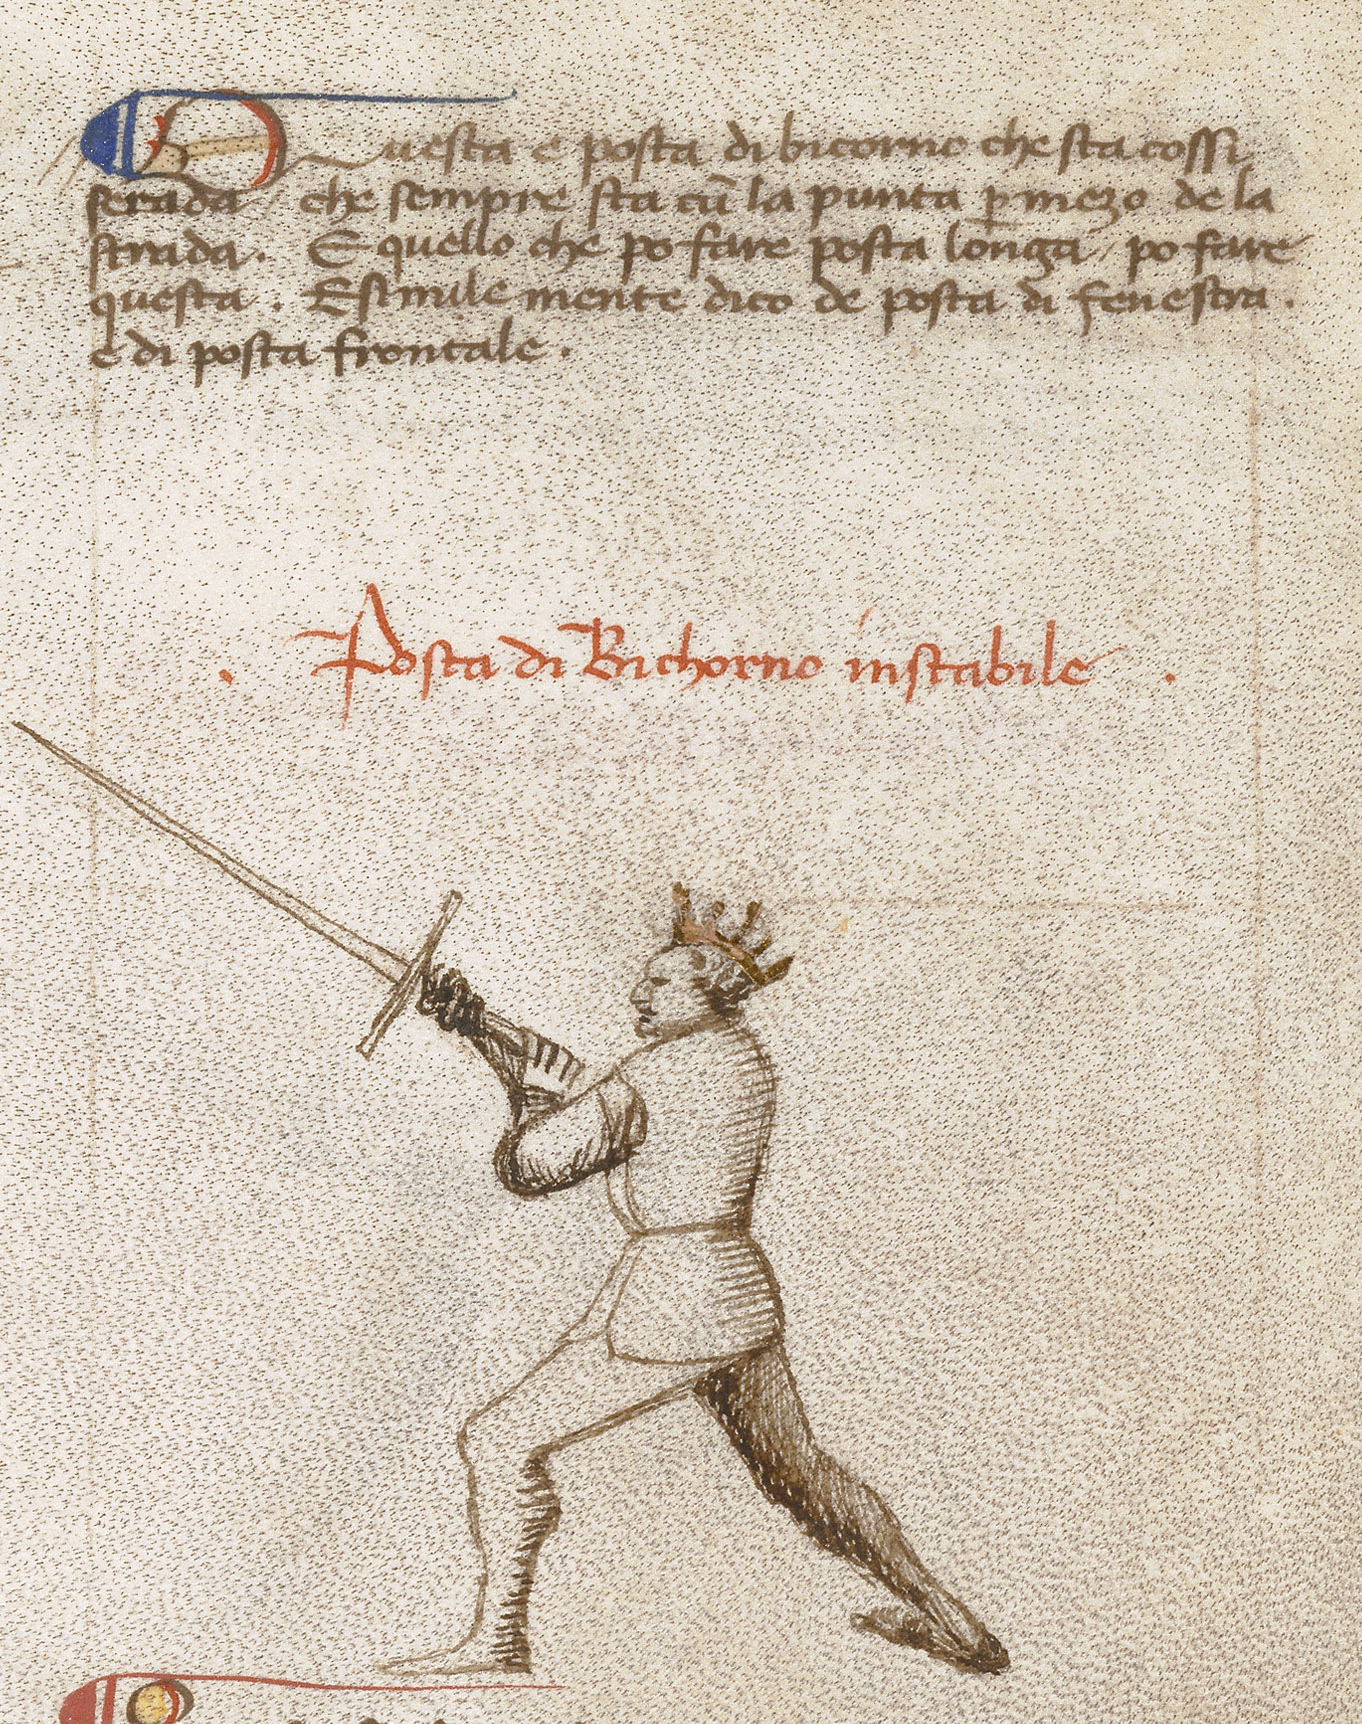 Questa e posta di bicorno che sta cossi
serada / che sempre sta cū la punta p̲ mezo de la
strada. E quello che po fare posta longa / po fare
questa. E simile mente dico de posta di fenestra.
e di posta frontale.
. Posta di Bichorno instabile .